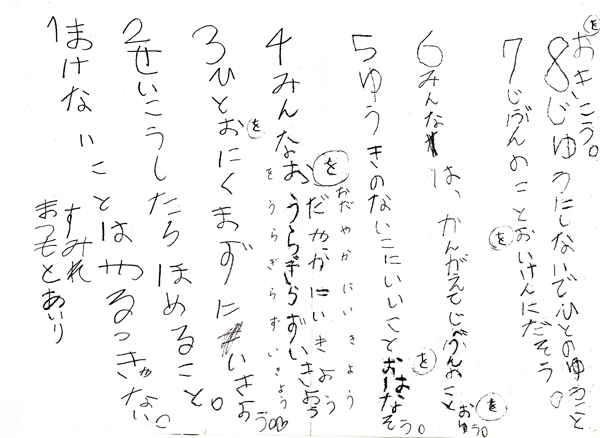 1まけないことはやるっきゃない。
すみれ
まつもとあいり
2せいこうしたらほめること。
3ひとおにくまずにいきよう。
を
4みんなおうらぎらずいきよう
をうらぎらずいきよう
を
だやかにいきよう
おだやかにいきよう
5ゆうきのないこにいいことおはなそう。
を
6みんなは、かんがえてじぶんのことおゆう。
を
7じぶんのことおいけんにだそう。
を
8じゆうにしないでひとのゆうこと
おきこう。
を